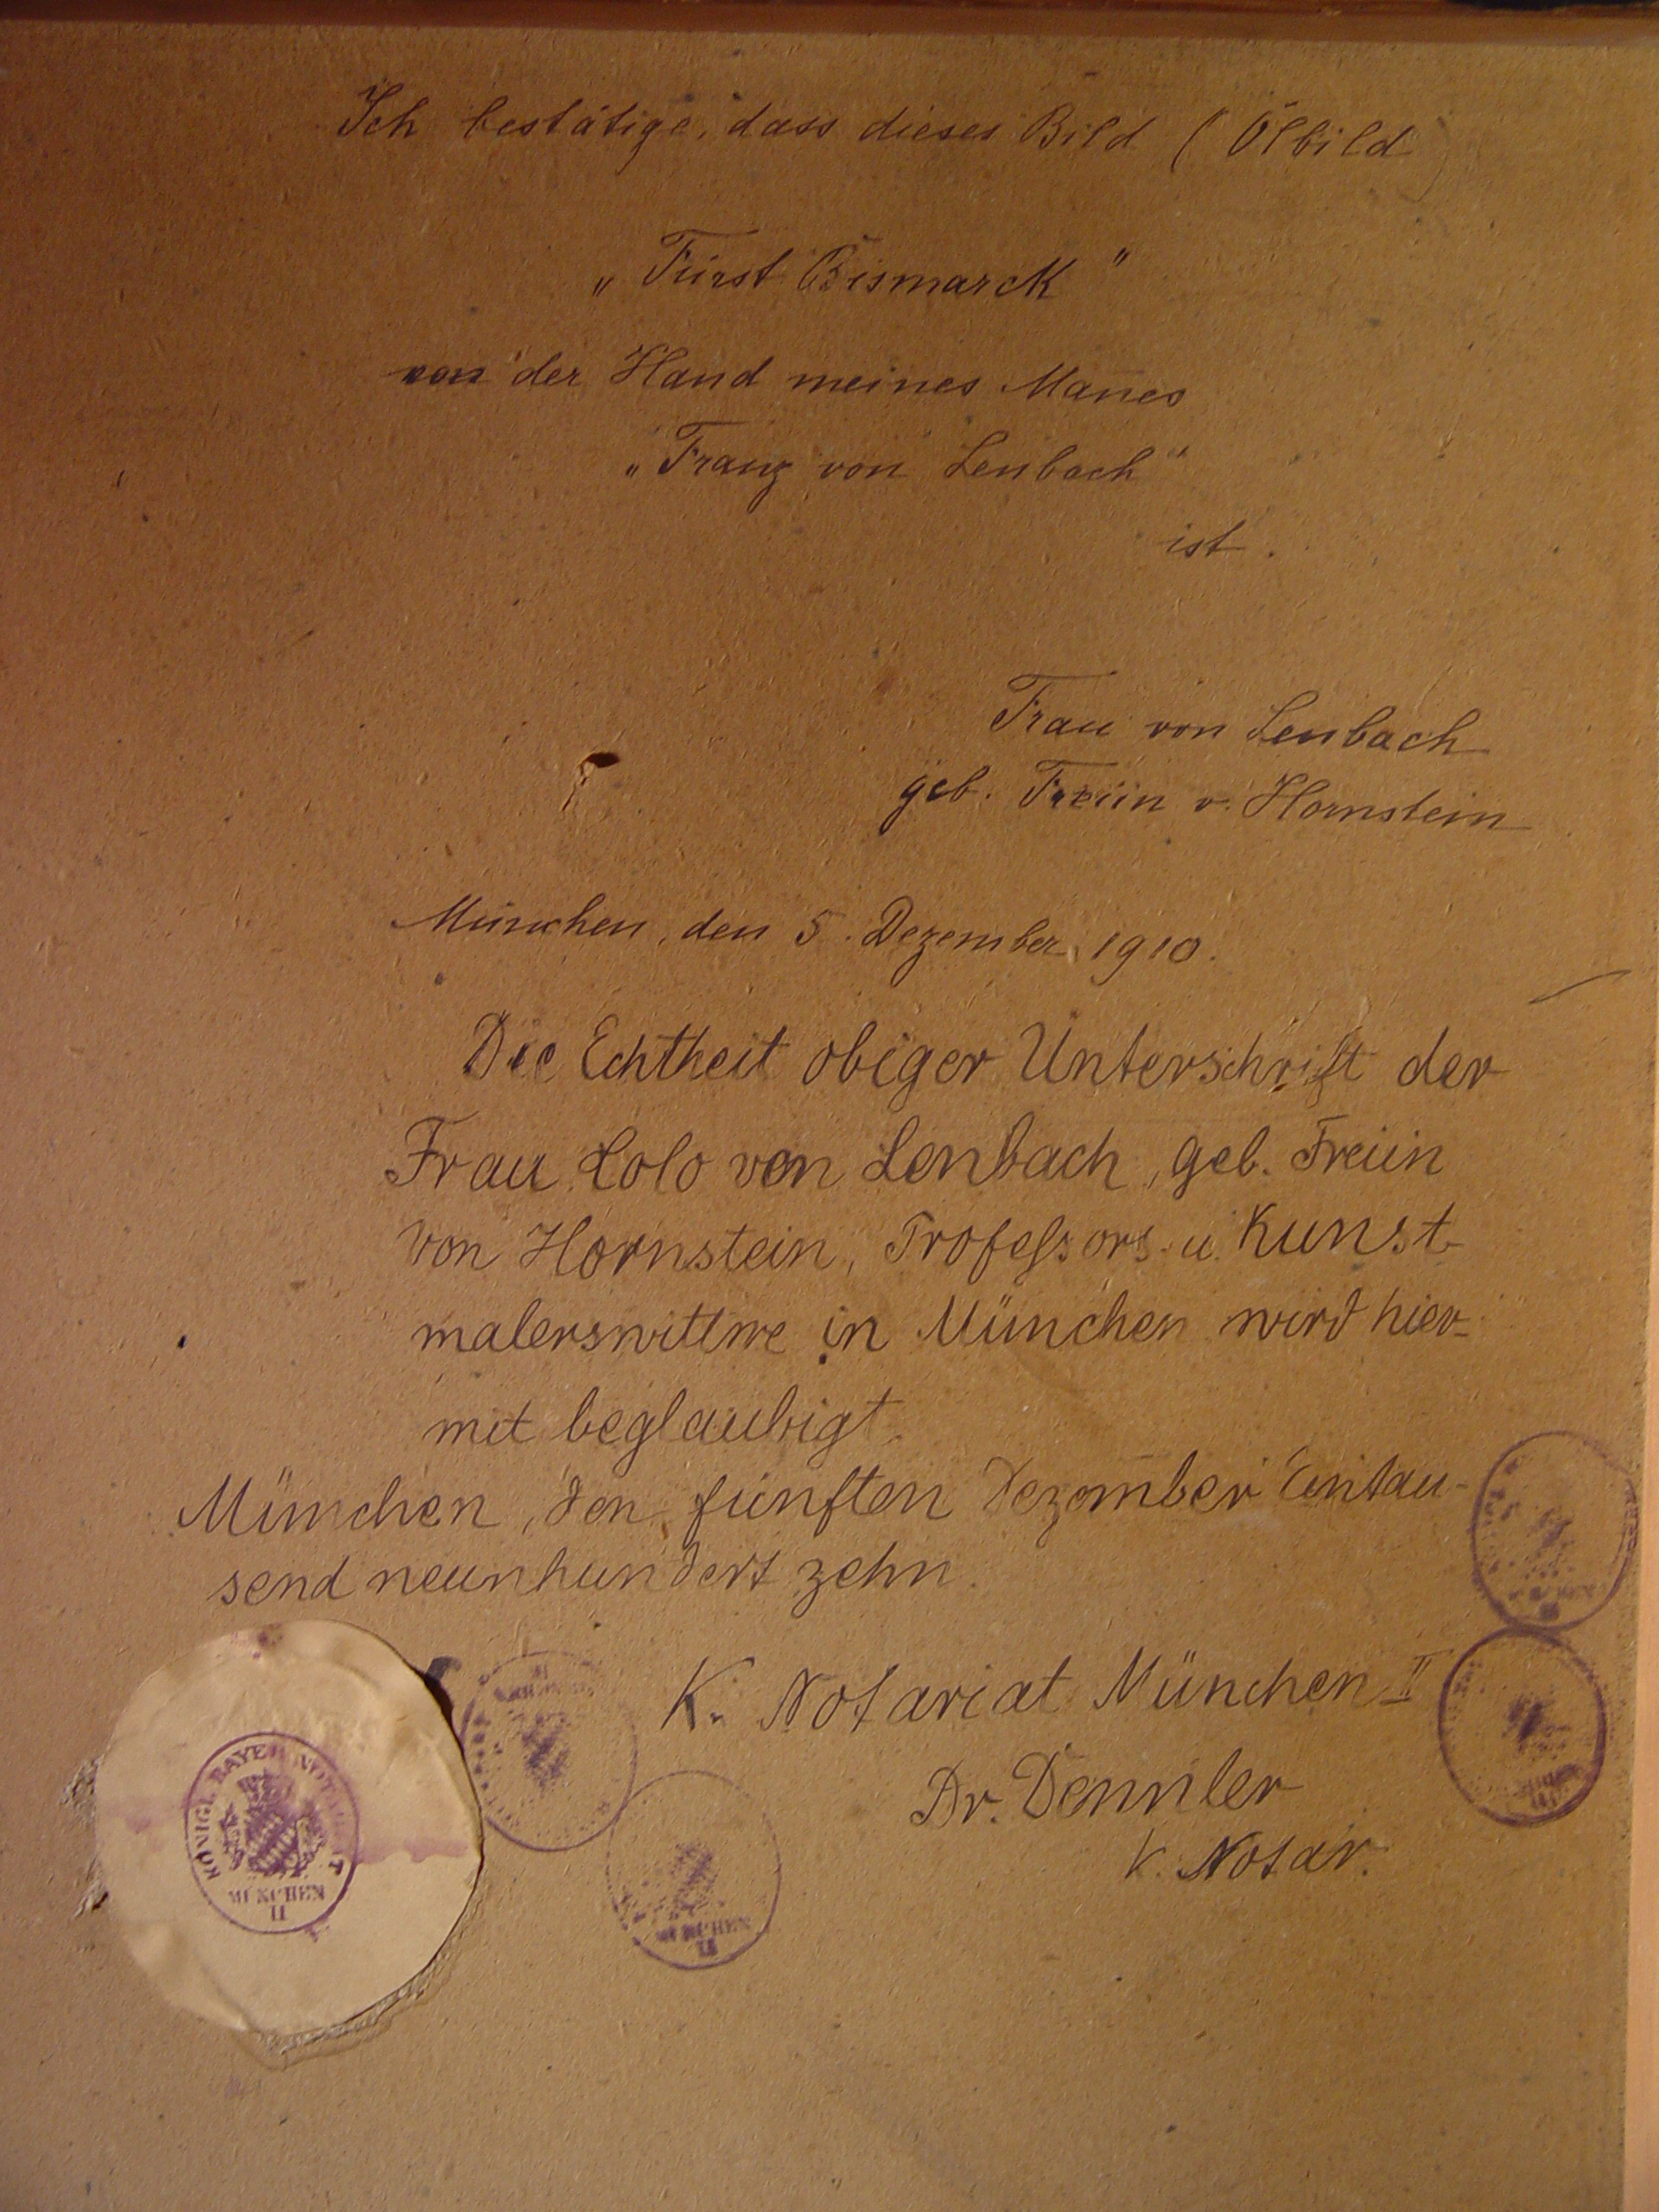 Ich bestätige, dass dieses Bild (Ölbild)
„Fürst Bismarck"
von der Hand meines Man̄es
„Franz von Lenbach"
ist.
Frau von Lenbach
geb. Freiin v. Hornstein
München, den 5. Dezember 1910.
Die Echtheit obiger Unterschrift der
Frau Lolo von Lenbach, geb. Freiin
von Hornstein, Professors- u. Kunst-
malerswittwe in München wird hier-
mit beglaubigt.
München, den fünften Dezember Eintau-
send neunhundert zehn.
K. Notariat München II
Dr. Dennler
K. Notar.
KÖNIGL. BAYER. NOTARIAT
MÜNCHEN
II
MÜNCHEN
II